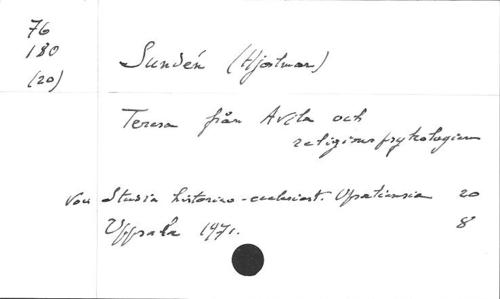 76
180
(20)
Sundén (Hjalmar)
Teresa från Avila och
religionspsykologien
Studia historico-ecclesiast. Upsaliensia 20
Uppsala 1971. 8